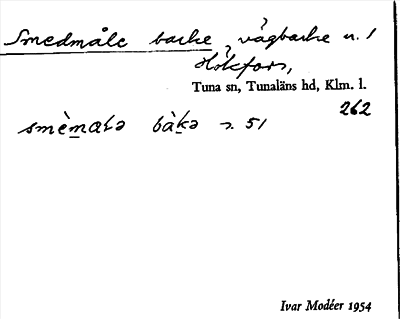 Smedmåle backe, vägbacke n. 1
Hökfors,
Tuna sn, Tunaläns hd, Klm. l.
262
smè̱maɫə bàk̠ə n. 51
Ivar Modéer 1954